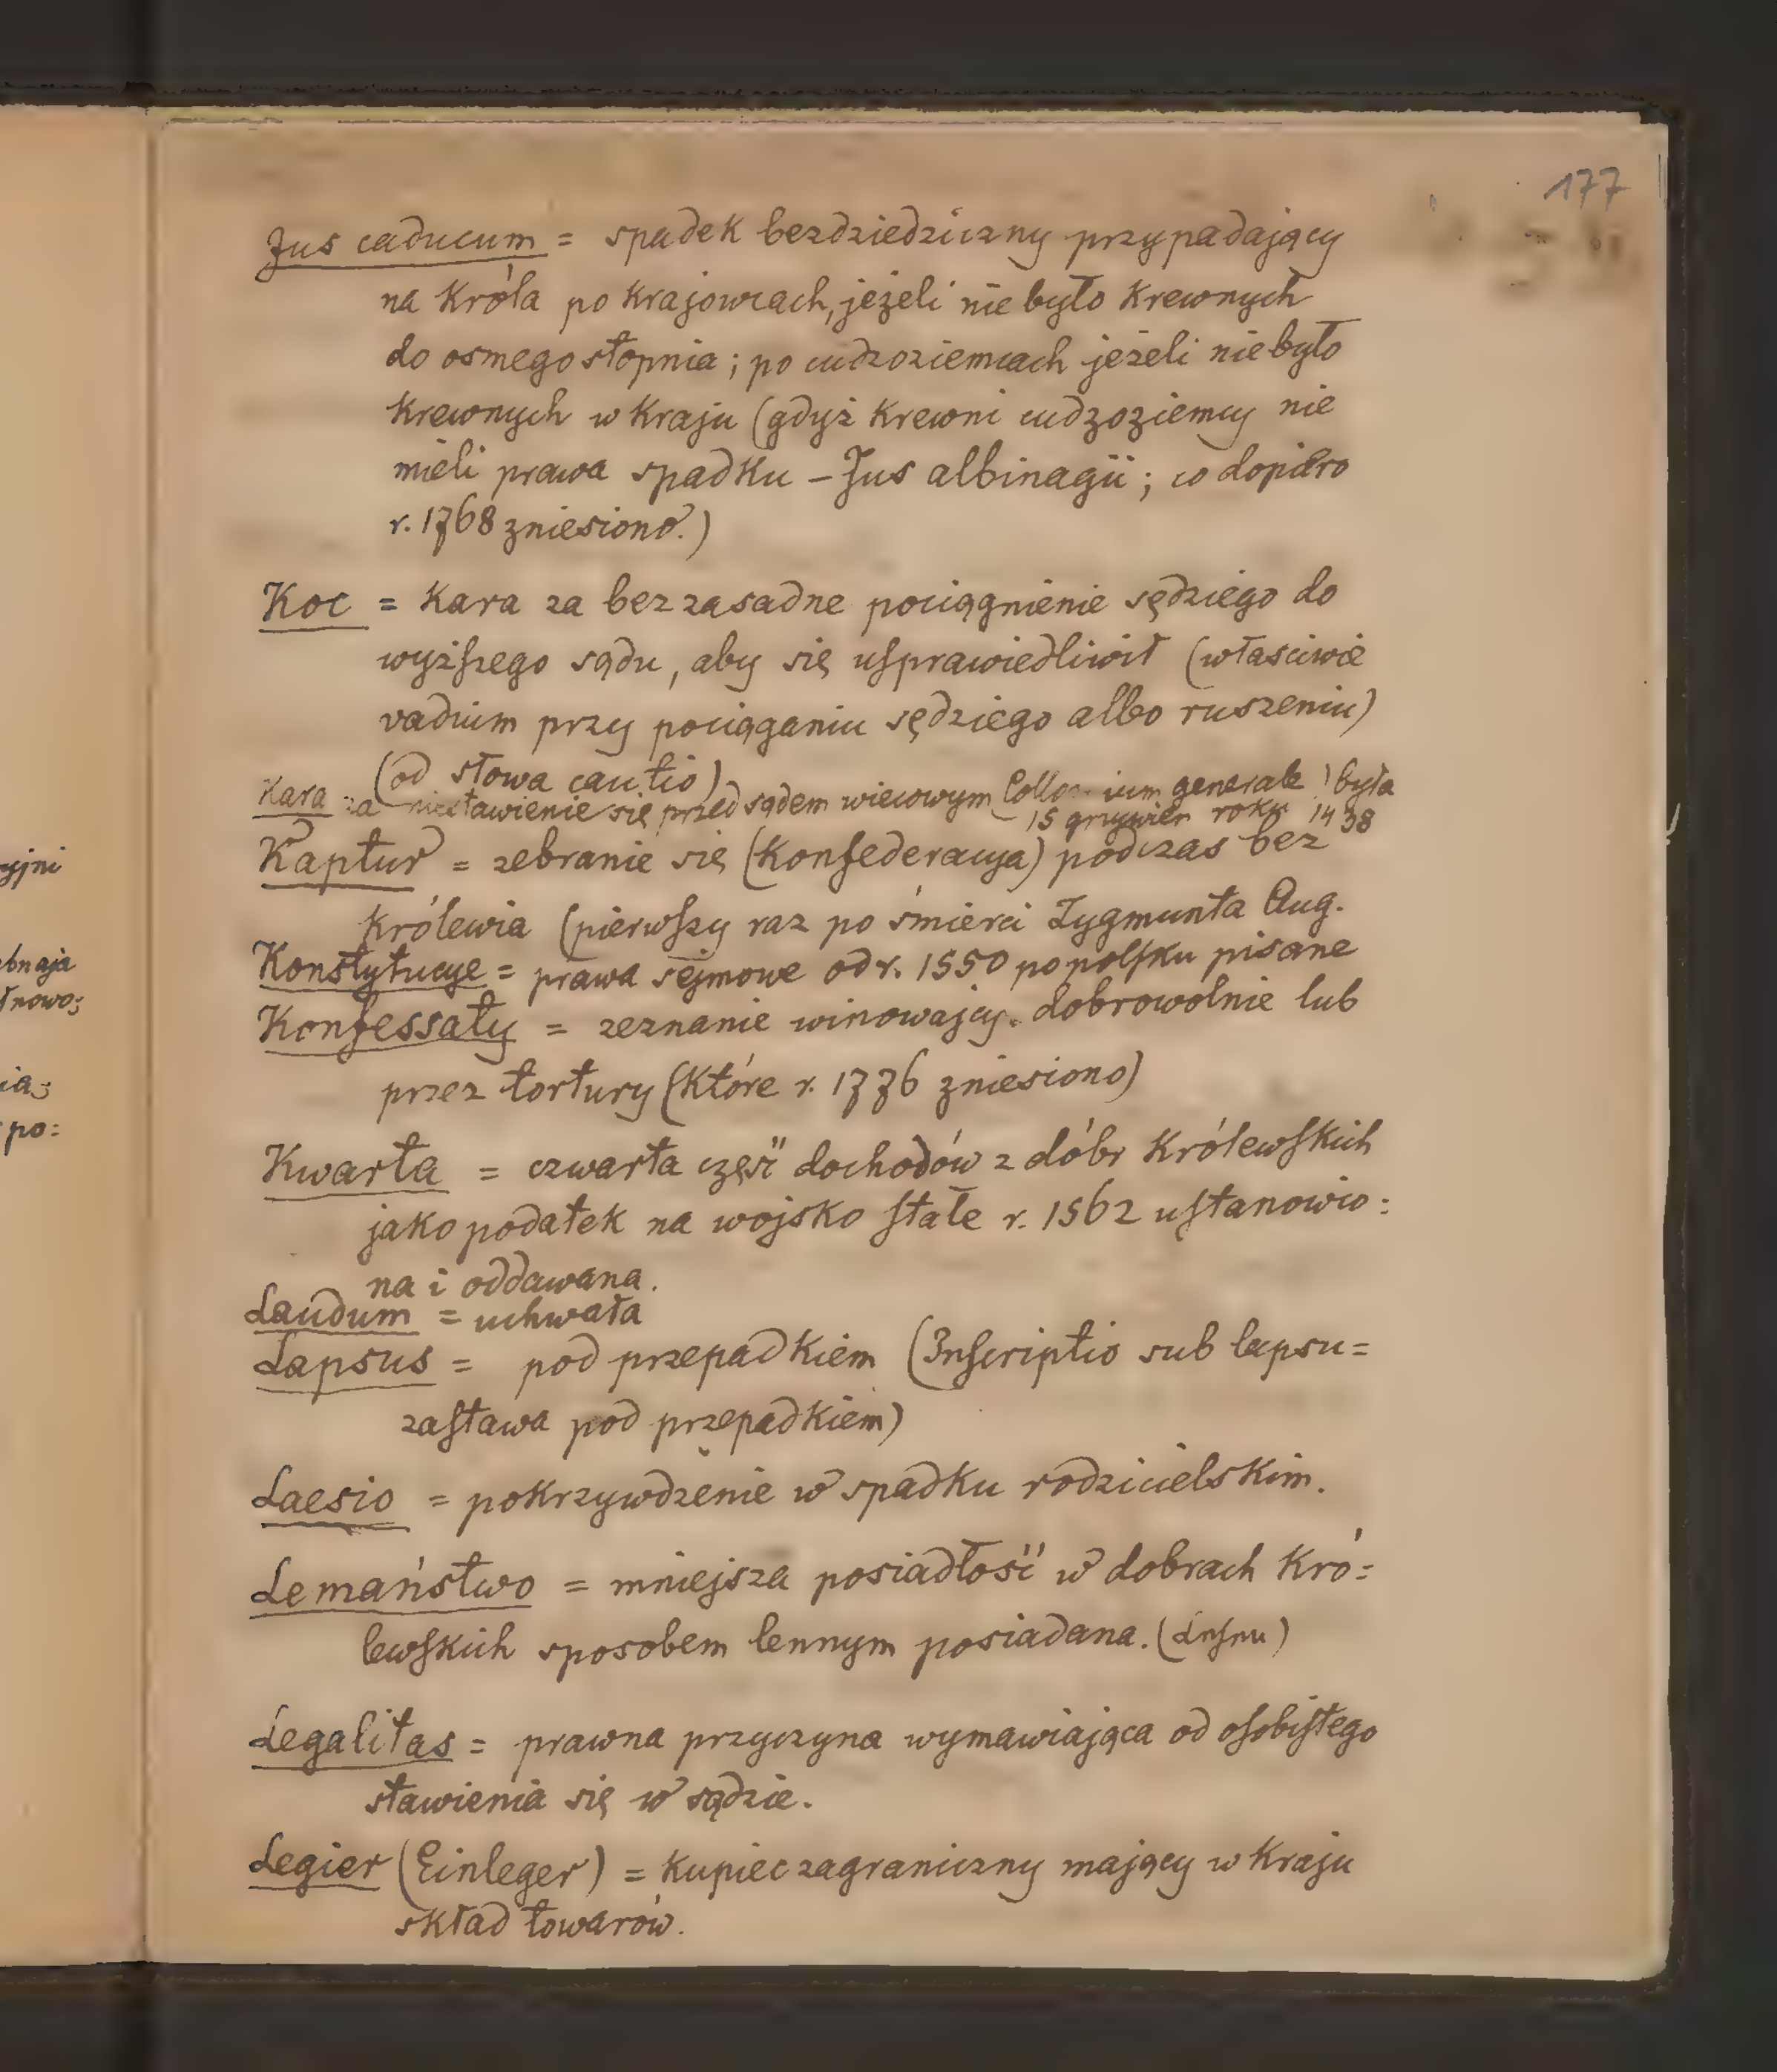 177
Jus caducum = spadek bezdziedziczny przypadający
na Króla po Krajowcach, jeżeli nie było Krewnych
do osmego stopnia; po cudzoziemcach jeżeli nie było
Krewnych w Kraju (gdyż Krewni cudzoziemcy nie
mieli prawa spadku – Jus albinagii; co dopiero
r. 1768 zniesiono.)
Koc = Kara za bezzasadne pociągnienie sędziego do
wyższego sądu, aby się usprawiedliwił (własciwie
vadium przy pociąganiu sędziego albo ruszeniu)
(od słowa cautio)
Kara za niestawienie się przed sądem wiecowym (Colloquium generale) była
15 grzywien roku 1438
Kaptur = zebranie się (Konfederacya) podczas bez
Królewia (pierwszy raz po śmierci Zygmunta Aug.
Konstytucye = prawa sejmowe od r. 1550 po polsku pisane
Konfessaty = zeznanie winowajcy dobrowolnie lub
przez tortury (Które r. 1776 zniesiono)
Kwarta = czwarta część dochodów z dóbr Królewskich
jako podatek na wojsko stałe r. 1562 ustanowio:
na i oddawana.
Laudum = uchwała
Lapsus = pod przepadkiem (Inscriptio sub lapsu=
zastawa pod przepadkiem)
Laesio = pokrzywdzenie w spadku rodzicielskim.
Lemaństwo = mniejsza posiadłość w dobrach Kró=
lewskich sposobem lennym posiadana.
Legalitas = prawna przyczyna wymawiająca od osobistego
stawienia się w sądzie.
Legier (Einleger) = Kupiec zagraniczny mający w Kraju
skład towarów.
yjni
bnaja
po: